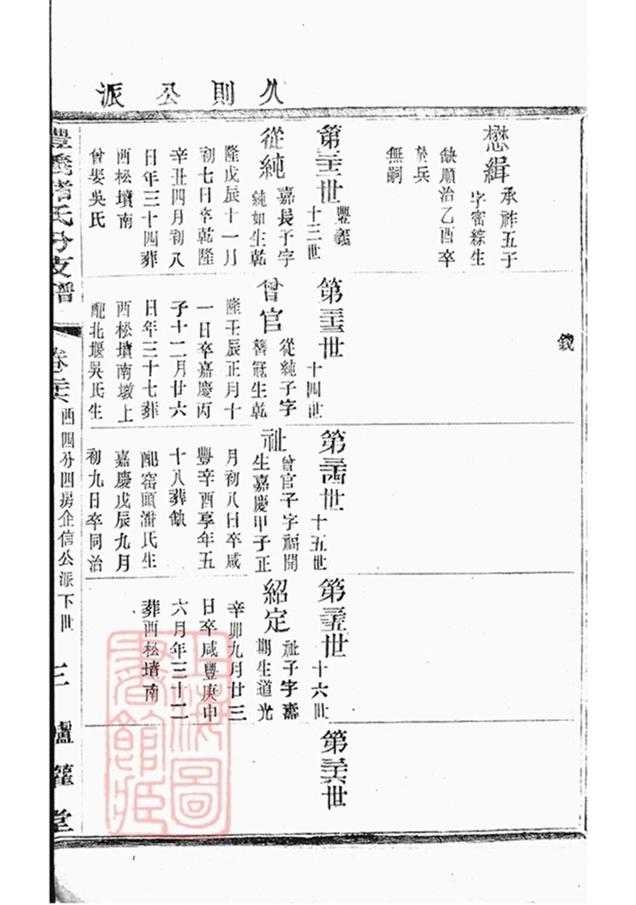 久則公派
懋緝
承祚五子
字密綜生
缺順治乙酉卒
於兵
無嗣
第三十二世
豐義
十三世
從純
嘉長子字
純如生乾
隆戊辰十一月
初七日卒乾隆
辛丑四月初八
日年三十四葬
酉松墳南
曾娶吳氏
第三十三世
十四世
曾官
從純子字
簪冠生乾
隆壬辰正月十
一日卒嘉慶丙
子十二月廿六
日年三十七葬
酉松墳南墩上
配北堰吳氏生
第三十四世
十五世
祉
曾官子字福開
生嘉慶甲子正
月初八日卒咸
豐辛酉享年五
十八葬缺
配窑頭潘氏生
嘉慶戊辰九月
初九日卒同治
第三十五世
十六世
紹定
祉子字壽
期生道光
辛卯九月廿三
日卒咸豐庚申
六月年三十二
葬酉松墳南
第三十六世
氏分支譜
酉四分四房企信公派下世
三
上海圖書館藏